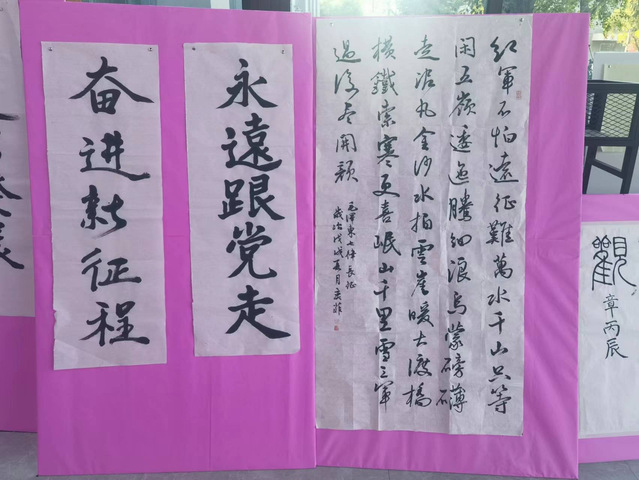 永遠跟党走
奋进新征程
红軍不怕遠征難萬水千山只等
闲五嶺逶迤騰细浪烏蒙磅薄
走泥丸金沙水拍雲崖暖大渡橋
横鐵索寒更喜岷山千里雪三軍
過後尽開颜
毛澤東七律長征
歲次戊戌夏月
觀
章丙辰